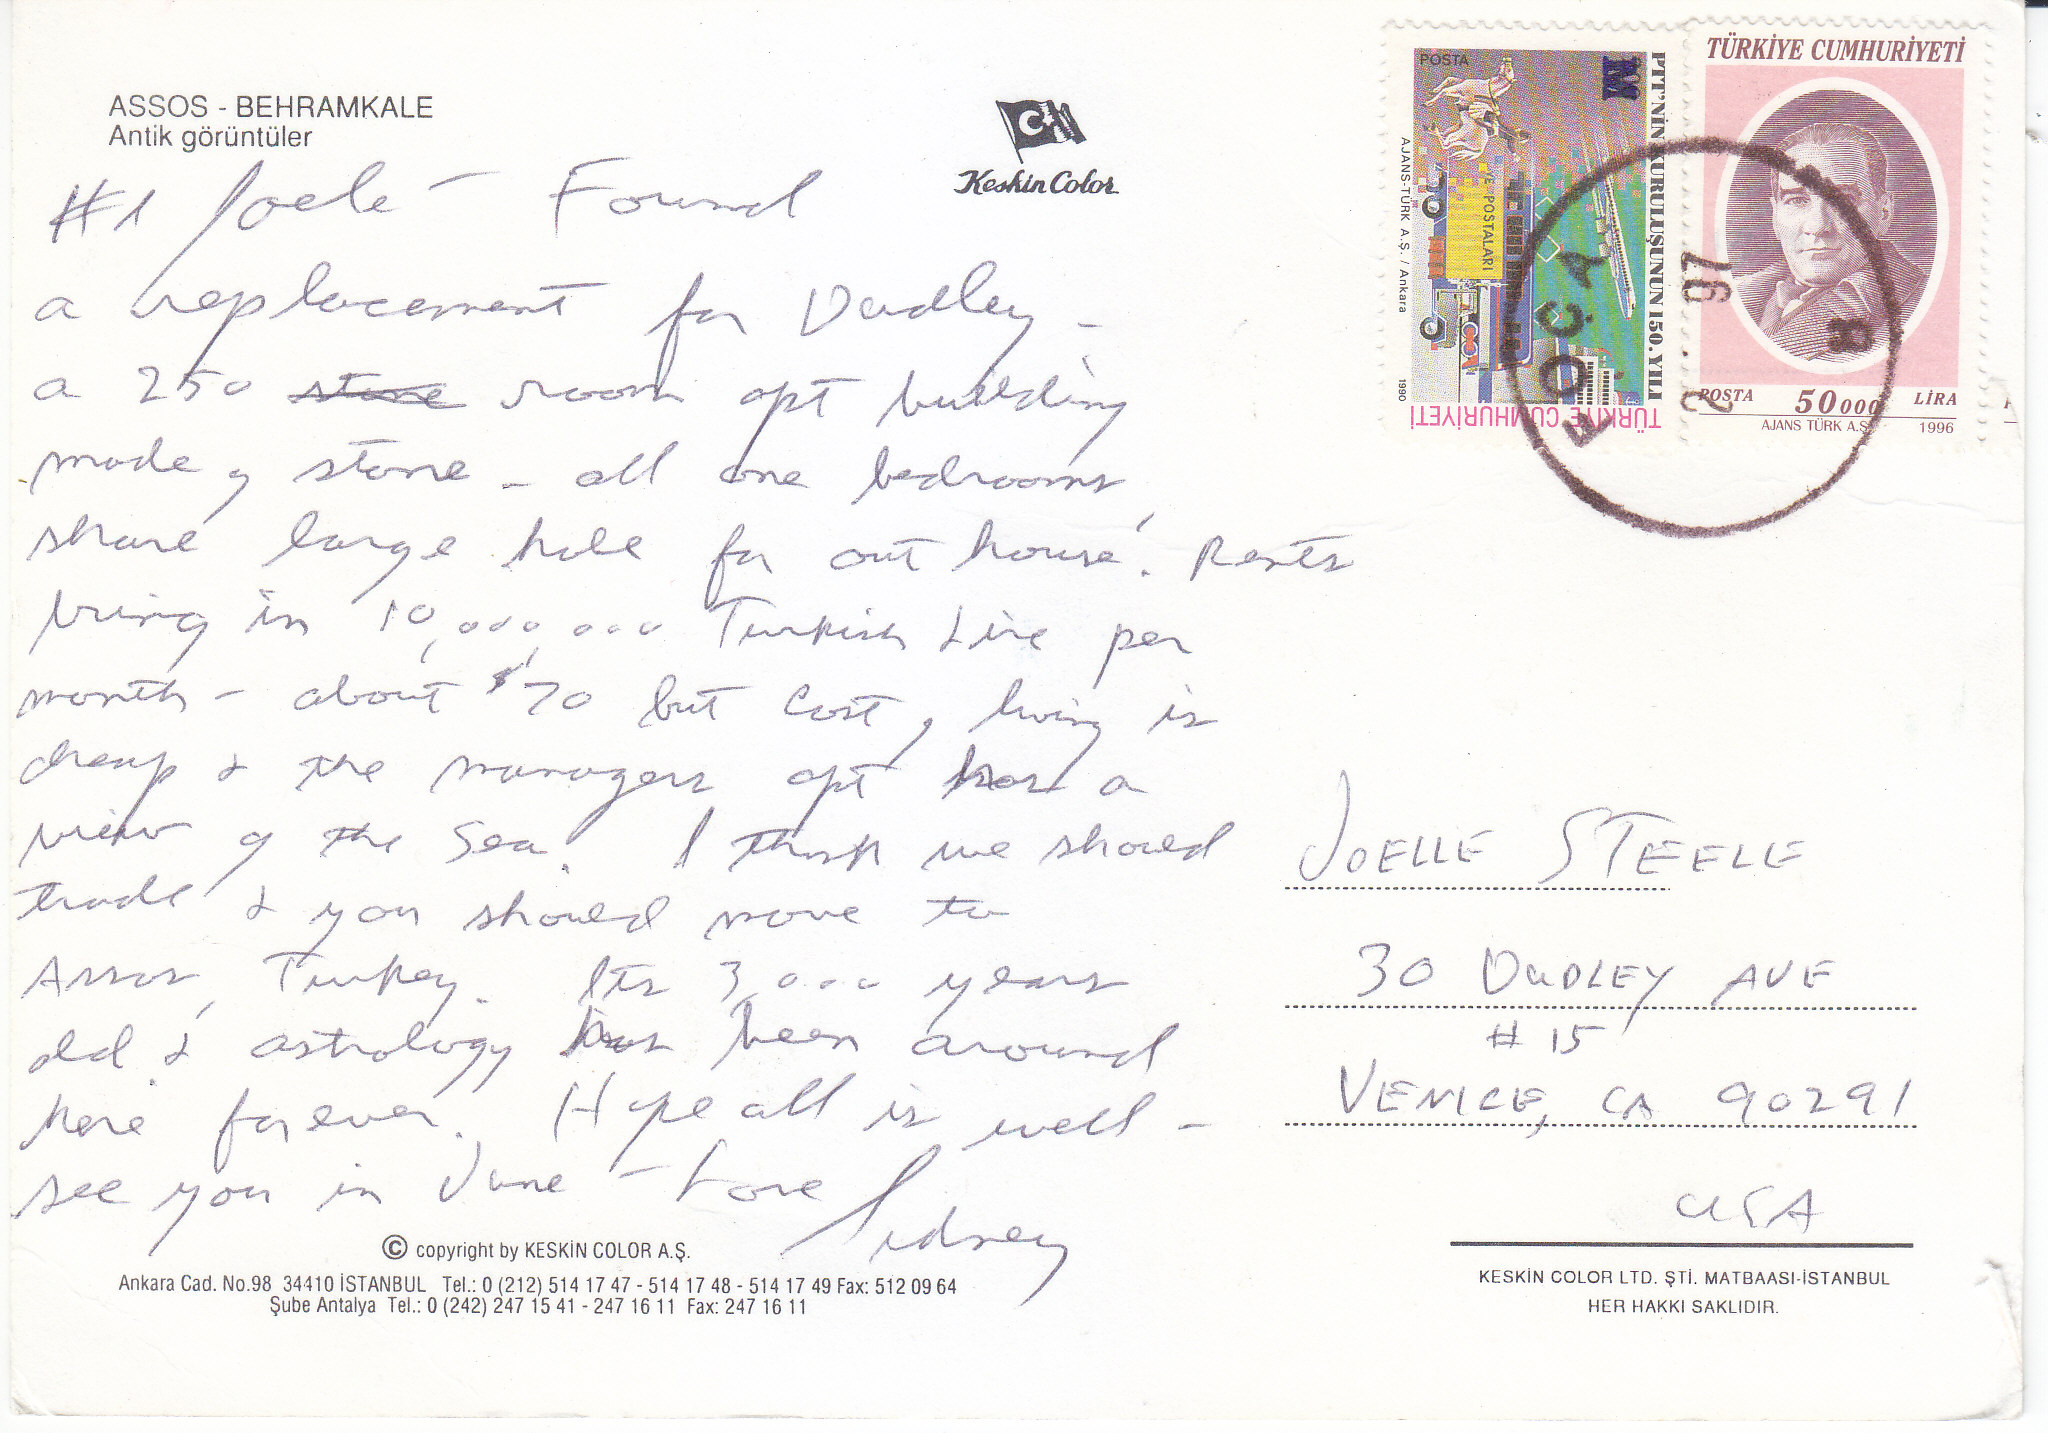 ASSOS - BEHRAMKALE
Antik görüntüler
Keskin Color
#1 Joele - Found
a replacement for Dudley -
a 250 stone room apt building
made of stone - all one bedrooms,
share large hole for out house. Rents
bring in 10,000,000 Turkish Lire per
month - about $70 but cost of living is
cheap & the managers apt has a
view of the sea. I think we should
trade & you should move to
Assos, Turkey. Its 3,000 years
old & astrology has been around
here forever. Hope all is well -
see you in June - Love Sidney
© copyright by KESKİN COLOR A.Ş.
Ankara Cad. No.98 34410 İSTANBUL Tel.: 0 (212) 514 17 47 - 514 17 48 - 514 17 49 Fax: 512 09 64
Şube Antalya Tel.: 0 (242) 247 15 41 - 247 16 11 Fax: 247 16 11
POSTA
PTT'NİN KURULUŞUNUN 150. YILI
VE POSTALARI
AJANS-TÜRK A.Ş. / Ankara 1990
TÜRKİYE CUMHURİYETİ
TÜRKİYE CUMHURİYETİ
POSTA 50000 LİRA
AJANS TÜRK A.Ş. 1996
FOÇA
97
JOELLE STEELE
30 DUDLEY AVE
# 15
VENICE, CA 90291
USA
KESKİN COLOR LTD. ŞTİ. MATBAASI-İSTANBUL
HER HAKKI SAKLIDIR.